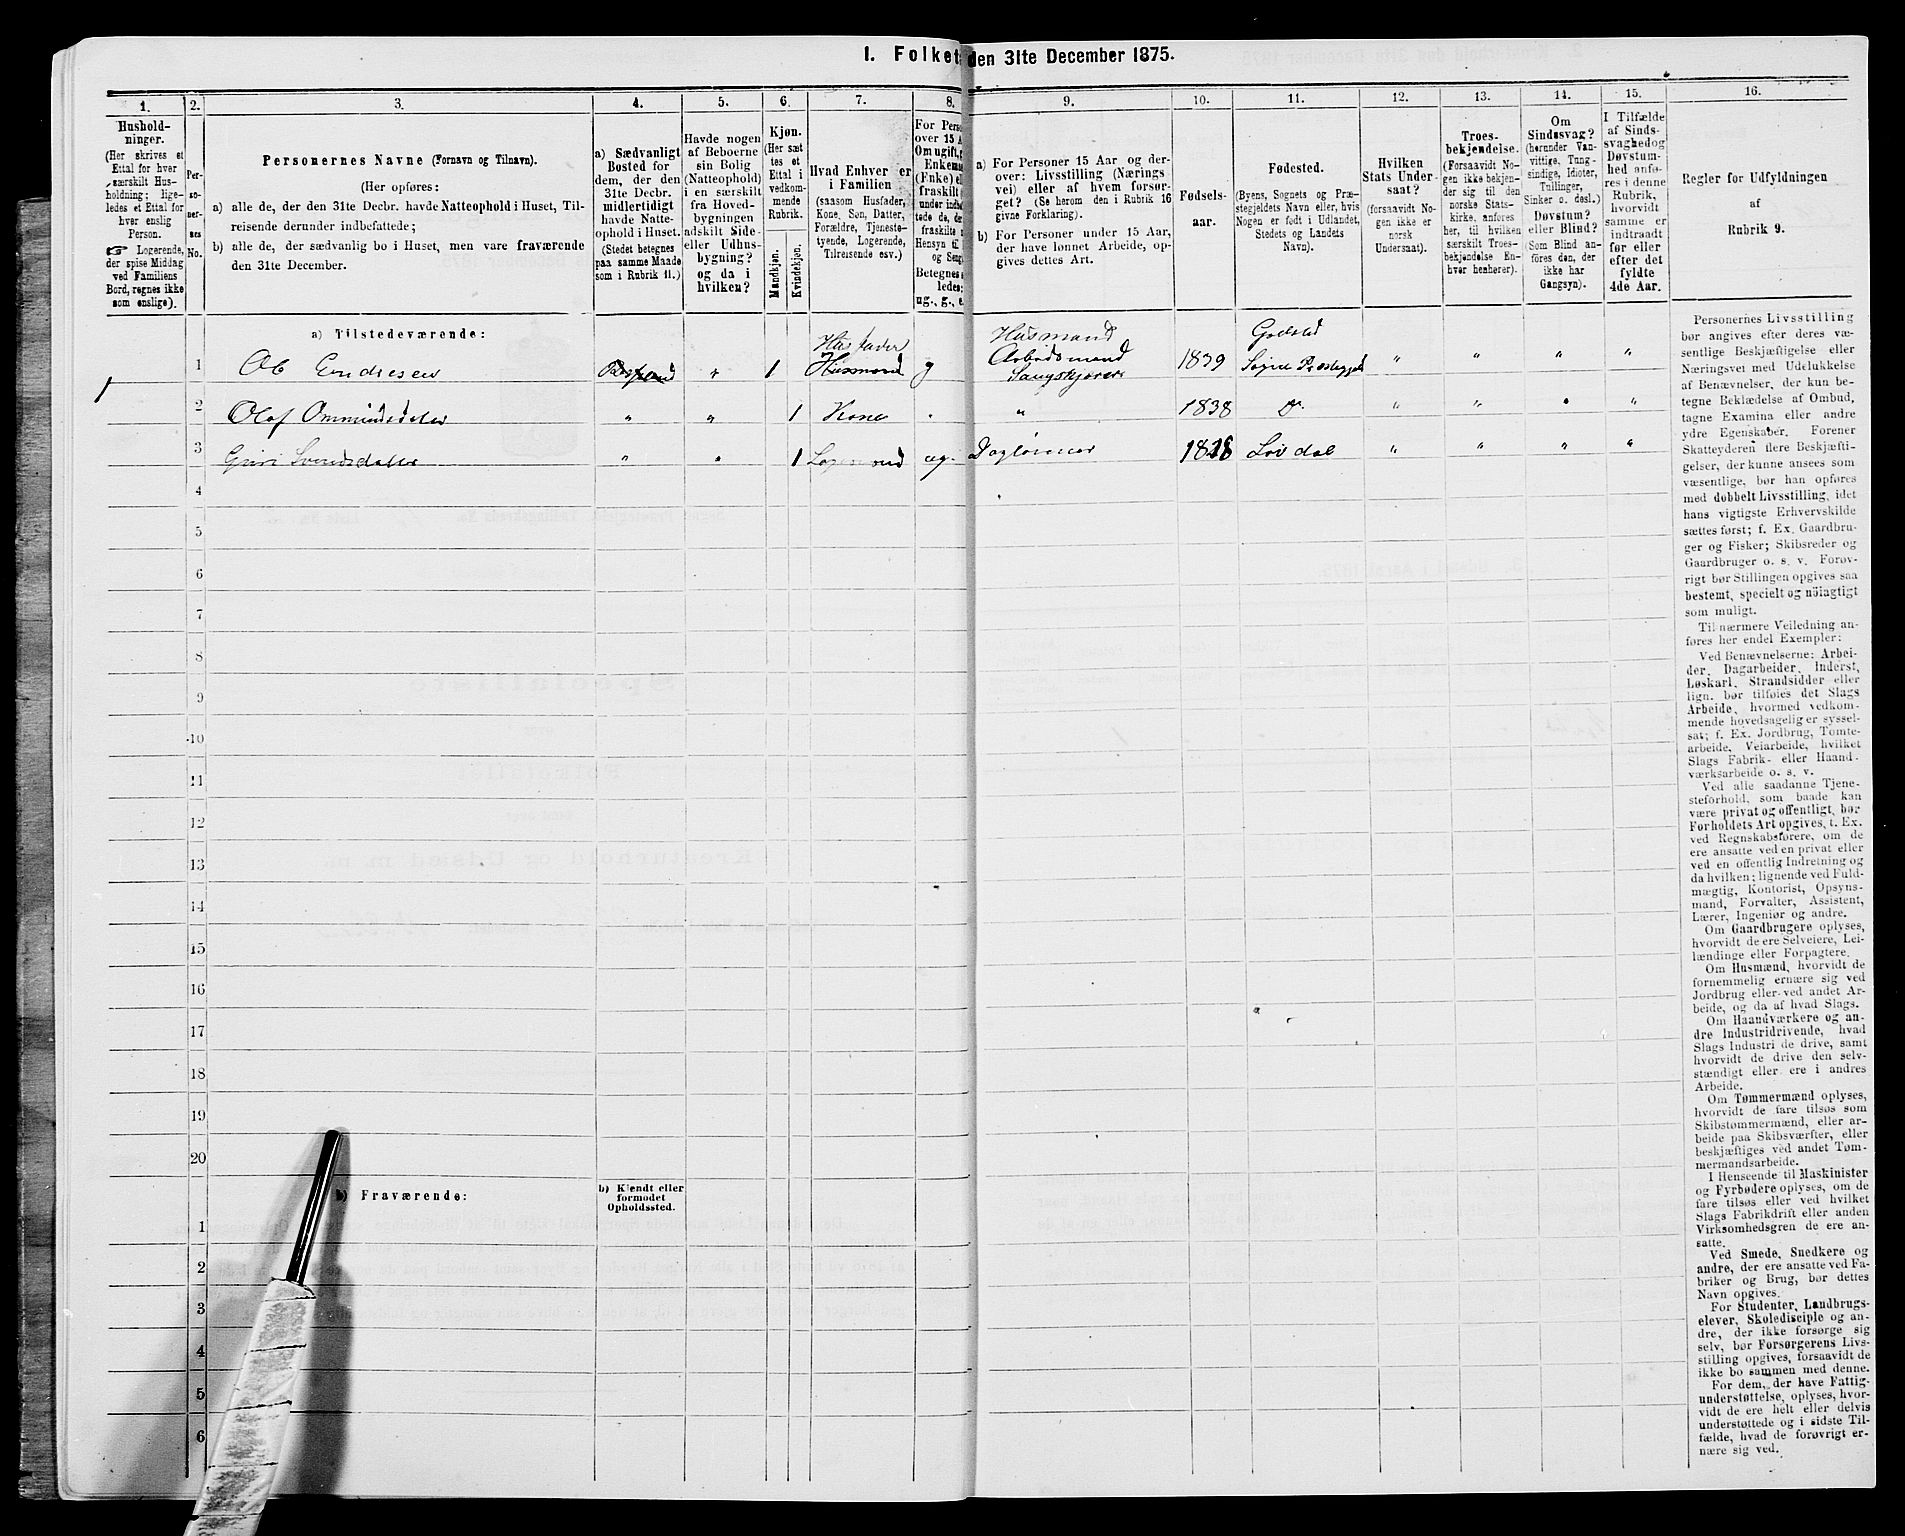 1. Folket
den 31te December 1875.
1.
2.
3.
4.
5.
6.
7.
8.
9.
10.
11.
12.
13.
14.
15.
16.
Hushold-
ninger.
(Her skrives et
Ettal for hver
særskilt Hus-
holdning; lige-
ledes et Ettal for
hver enslig
Person.
☞ Logerende,
der spise Middag
ved Familiens
Bord, regnes ikke
som enslige).
Per-
so-
ner-
nes
No.
Personernes Navne (Fornavn og Tilnavn).
(Her opføres:
a) alle de, der den 31te Decbr. havde Natteophold i Huset, Til-
reisende derunder indbefattede;
b) alle de, der sædvanlig bo i Huset, men vare fraværende
den 31te December.
a) Sædvanligt
Bosted for
dem, der den
31te Decbr.
midlertidigt
havde Natte-
ophold i Huset.
(Stedet betegnes
paa samme Maade
som i Rubrik 11.)
Havde nogen
af Beboerne
sin Bolig
(Natteophold)
i en særskilt
fra Hoved-
bygningen
adskilt Side-
eller Udhus-
bygning?
og da i
hvilken?
Kjøn.
(Her sæt
tes et
Ettal i
vedkom-
mende
Rubrik.
Mandkjøn.
Kvindekjøn.
Hvad Enhver er
i Familien
(saasom Husfader,
Kone, Søn, Datter,
Forældre, Tjeneste-
tyende, Logerende,
Tilreisende osv.)
For Perso
over 15 A
Om ugift, g
Enkema
(Enke) el
fraskilt
under indbe
tede de, de
fraskilte
Hensyn til
og Seng
Betegnes s
ledes:
ug., g., e
a) For Personer 15 Aar og der-
over: Livsstilling (Nærings
vei) eller af hvem forsør-
get? (Se herom den i Rubrik 16
givne Forklaring).
b) For Personer under 15 Aar,
der have lønnet Arbeide, op-
gives dettes Art.
Fødsels-
aar.
Fødested.
(Byens, Sognets og Præ-
stegjeldets Navn eller, hvis
Nogen er født i Udlandet,
Stedets og Landets
Navn).
Hvilken
Stats Under-
saat?
(forsaavidt No-
gen ikke er
norsk
Undersaat).
Troes-
bekjendelse.
(Forsaavidt No-
gen ikke bekjen-
der sig til den
norske Stats-
kirke, anføres
her, til hvilken
særskilt Troes-
bekjendelse En-
hver henhører).
Om
Sindssvag?
(herunder Van-
vittige, Tung-
sindige, Idioter,
Tullinger,
Sinker o. desl.)
Døvstum?
eller Blind?
(Som Blind an-
føres den, der
ikke har
Gangsyn).
I Tilfælde
af Sinds-
svaghed og
Døvstum-
hed anfø-
res i denne
Rubrik,
hvorvidt
samme er
indtraadt
før eller
efter det
fyldte
4de Aar.
Regler for Udfyldningen
af
Rubrik 9.
a) Tilstedeværende:
1 1 Ole Endresen " 1 Husfader Husmand g Husmand Arbeidsmand 1839 Søgne Præstegjeld " " " "
2 Olaf Ommundsdatter " " 1 Kone " " 1838 Do " " " "
3 Guri Svendsdatter " " 1 Logerend ug. Daglönner " " " "
4
5
6
7
8
9
10
11
12
13
14
15
16
17
18
19
20
b) Fraværende:
b) Kjendt eller
formodet
Opholdssted.
1
2
3
4
5
6
Personernes Livsstilling
bør angives efter deres væ-
sentlige Beskjæftigelse eller
Næringsvei med Udelukkelse
af Benævnelser, der kun be-
tegne Beklædelse af Ombud,
tagne Examina eller andre
ydre Egenskaber. Forener
Skatteyderen flere Beskjæfti-
gelser, der kunne ansees som
væsentlige, bør han opføres
med dobbelt Livsstilling, idet
hans vigtigste Erhvervskilde
sættes først; f. Ex. Gaardbru-
ger og Fisker; Skibsreder og
Gaardbruger o. s. v. Forøv-
rigt bør Stillingen opgives saa
bestemt, specielt og nöiagtigt
som muligt.
Til nærmere Veiledning an-
føres her endel Exempler:
Ved Benævnelserne: Arbei-
der, Dagarbeider, Inderst,
Løskarl, Strandsidder eller
lign. bør tilføies det Slags
Arbeide, hvormed vedkom-
mende hovedsagelig er syssel-
sat; f. Ex. Jordbrug, Tomte-
arbeide, Veiarbeide, hvilket
Slags Fabrik- eller Haand-
værksarbeide o. s. v.
Ved alle saadanne Tjene-
steforhold, som baade kan
være privat og offentligt, bør
Forholdets Art opgives, t. Ex.
ved Regnskabsførere, om de
ere ansatte ved en privat eller
ved en offentlig Indretning og
da hvilken; lignende ved Fuld-
mægtig, Kontorist, Opsyns-
mand, Forvalter, Assistent,
Lærer, Ingeniør og andre.
Om Gaardbrugere oplyses,
hvorvidt de ere Selveiere, Lei-
lændinge eller Forpagtere.
Om Husmænd, hvorvidt de
fornemmelig ernære sig ved
Jordbrug eller ved andet Ar-
beide, og da af hvad Slags.
Om Haandværkere og an-
dre Industridrivende, hvad
Slags Industri de drive, samt
hvorvidt de drive den selv-
stændigt eller ere i andres
Arbeide.
Om Tømmermænd oplyses,
hvorvidt de fare tilsøs som
Skibstømmermænd, eller ar-
beide paa Skibsværfter, eller
beskjæftiges ved andet Tøm-
mermandsarbeide.
I Henseende til Maskinister
og Fyrbødere oplyses, om de
fare tilsøs eller ved hvilket
Slags Fabrikdrift eller anden
Virksomhedsgren de ere an-
satte.
Ved Smede, Snedkere og
andre, der ere ansatte ved Fa-
briker og Brug, bør dettes
Navn opgives.
For Studenter, Landbrugs-
elever, Skoledisciple og an-
dre, der ikke forsørge sig
selv, bør Forsørgerens Livs-
stilling opgives, forsaavidt de
ikke bo sammen med denne.
For dem, der have Fattig-
understøttelse, oplyses, hvor-
vidt de ere helt eller delvis
understøttede og i sidste Til-
fælde, hvad de forøvrigt er-
nære sig ved.